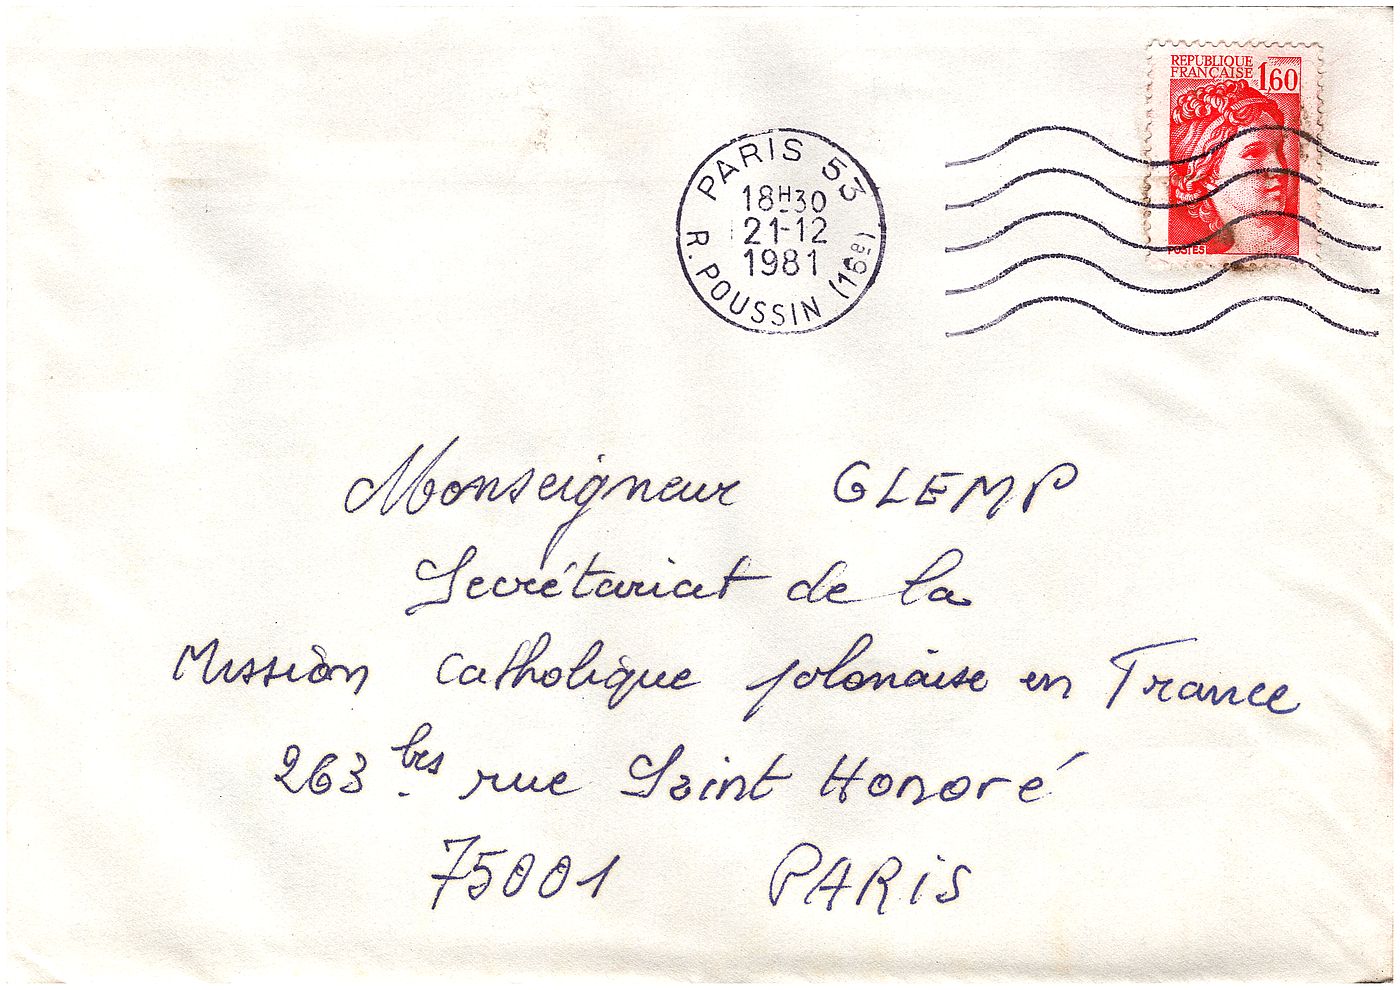 REPUBLIQUE
FRANÇAISE 1,60
POSTES
PARIS 53
18H30
21-12
1981
R. POUSSIN (16e)
Monseigneur GLEMP
Secrétariat de la
Mission catholique polonaise en France
263 bis rue Saint Honoré
75001 PARIS